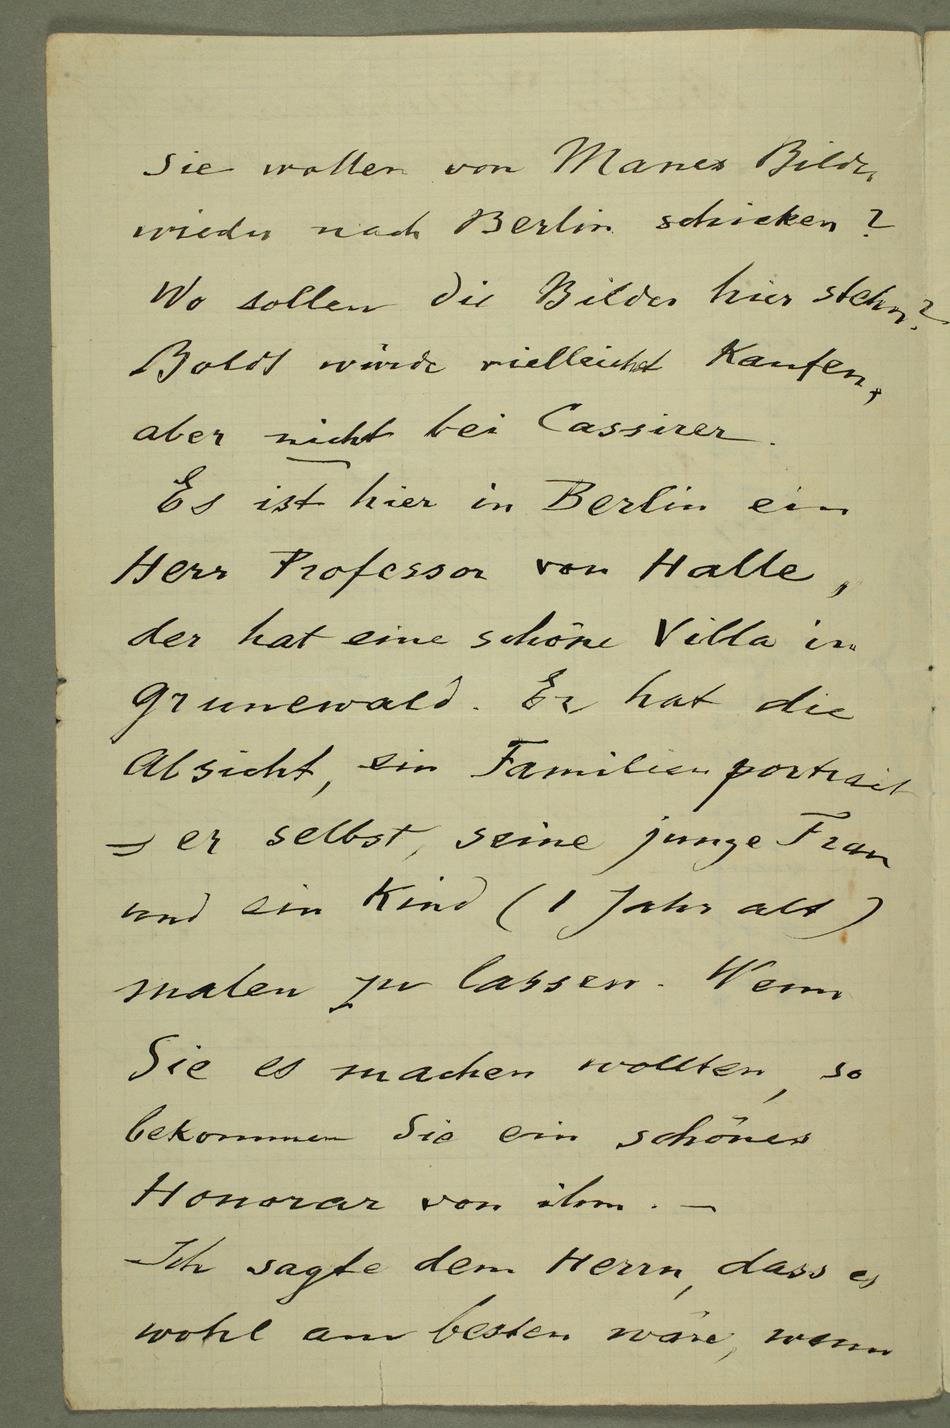 Sie wollen von Manes Bilder
wieder nach Berlin schicken?
Wo sollen die Bilder hier stehn?
Boldt würde vielleicht kaufen,
aber nicht bei Cassirer.
Es ist hier in Berlin ein
Herr Professor von Halle,
der hat eine schöne Villa in
Grunewald. Er hat die
Absicht, ein Familienportrait
– er selbst, seine junge Frau
und ein Kind (1 Jahr alt)
malen zu lassen. Wenn
Sie es machen wollten, so
bekommen Sie ein schönes
Honorar von ihm. –
Ich sagte dem Herrn, dass es
wohl am besten wäre, wenn